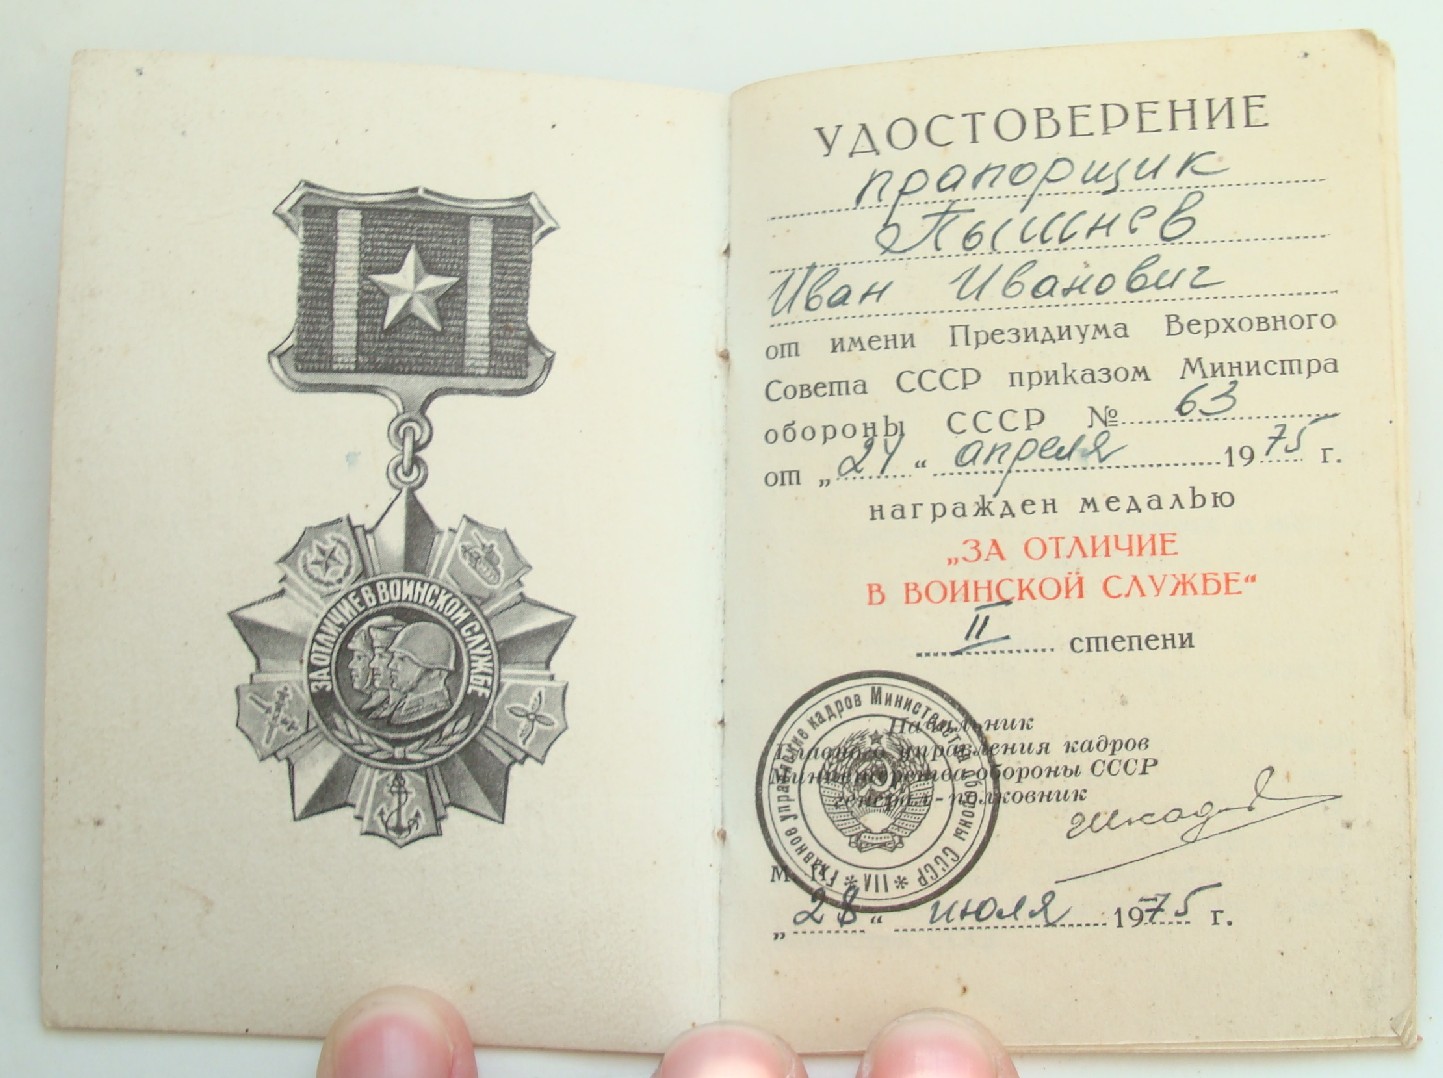 ЗА ОТЛИЧИЕ В ВОИНСКОЙ СЛУЖБЕ
УДОСТОВЕРЕНИЕ
прапорщик
Пышнев
Иван Иванович
от имени Президиума Верховного
Совета СССР приказом Министра
обороны СССР № 63
от „24“ апреля 1975 г.
награжден медалью
„ЗА ОТЛИЧИЕ
В ВОИНСКОЙ СЛУЖБЕ“
II степени
Начальник
Главного управления кадров
Министерства обороны СССР
генерал-полковник
Главное управление кадров Министерства обороны СССР
М. П.
„28“ июля 1975 г.